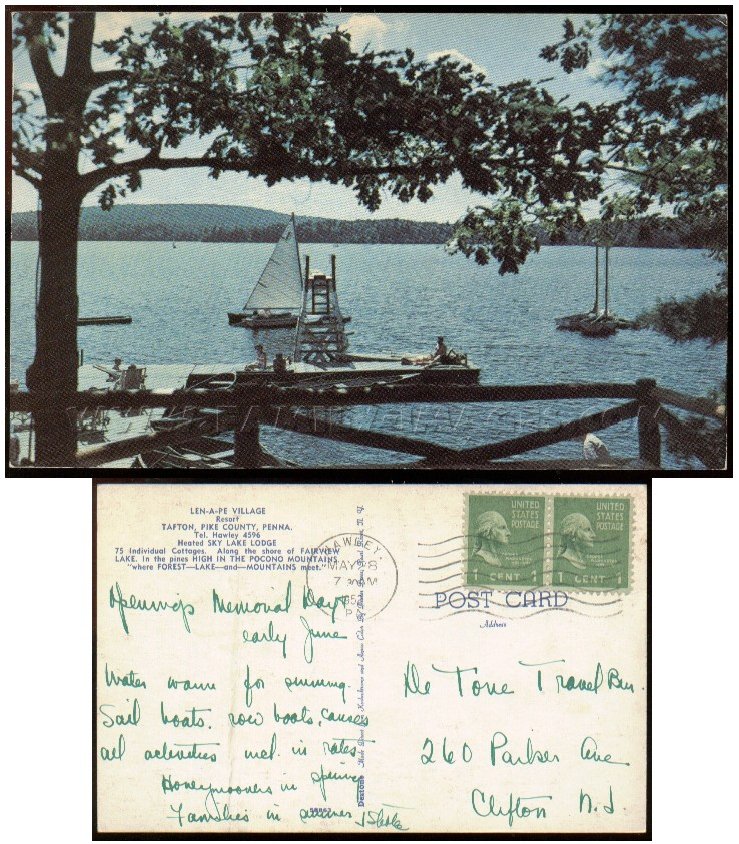 LEN-A-PE VILLAGE
Resort
TAFTON, PIKE COUNTY, PENNA.
Tel. Hawley 4596
Heated SKY LAKE LODGE
75 Individual Cottages. Along the shore of FAIRVIEW
LAKE. In the pines HIGH IN THE POCONO MOUNTAINS
"where FOREST—LAKE—and—MOUNTAINS meet."
Memorial Day
early June
Water warm for
Sail boats. row boats, canoes
all activities incl. in rates
Honeymooners in spring
Families in
Dextone
58863
HAWLEY
MAY 28
7
PA
UNITED
STATES
POSTAGE
1 CENT 1
UNITED
STATES
POSTAGE
1 CENT 1
POST CARD
Address
De Tone Travel Bur.
260 Parker Ave
Clifton N.J.